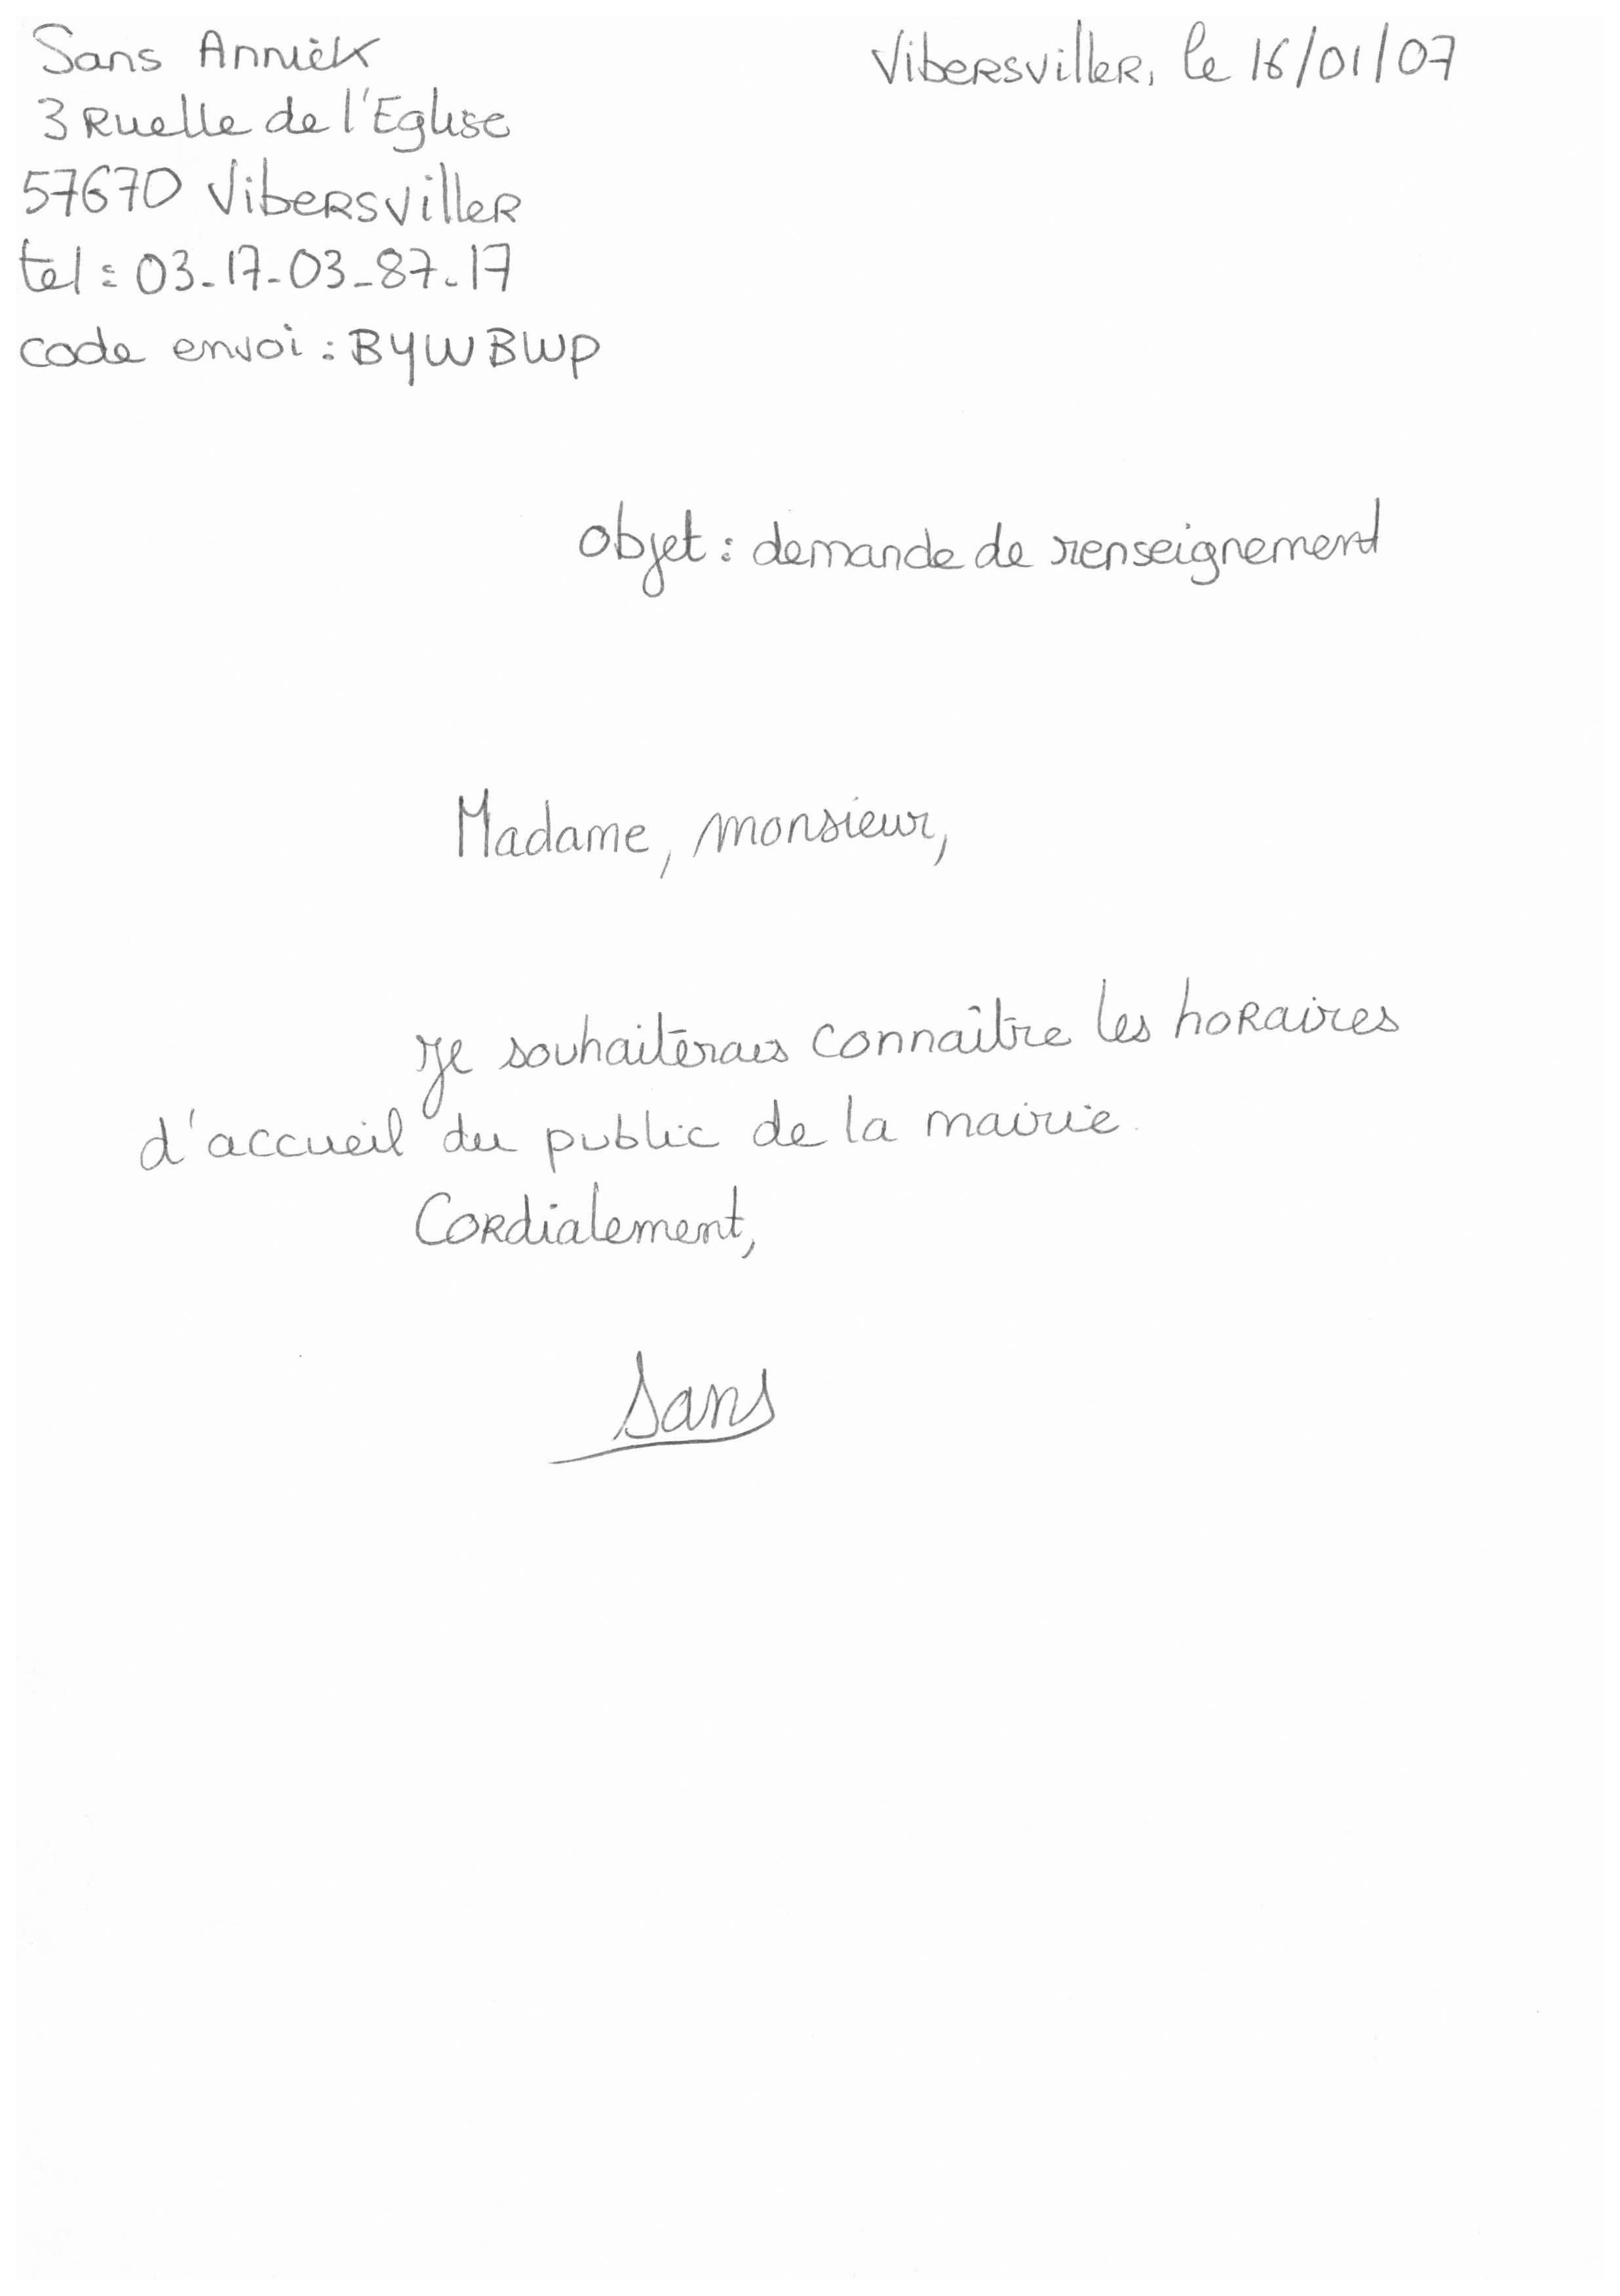 Sans Annick
3 Ruelle de l'Eglise
57670 Vibersviller
tel : 03-17-03-87-17
code envoi : BYWBWP
Vibersviller, le 16/01/07
objet : demande de renseignement
Madame, monsieur,
Je souhaiterais connaître les horaires
d'accueil du public de la mairie.
Cordialement,
Sans